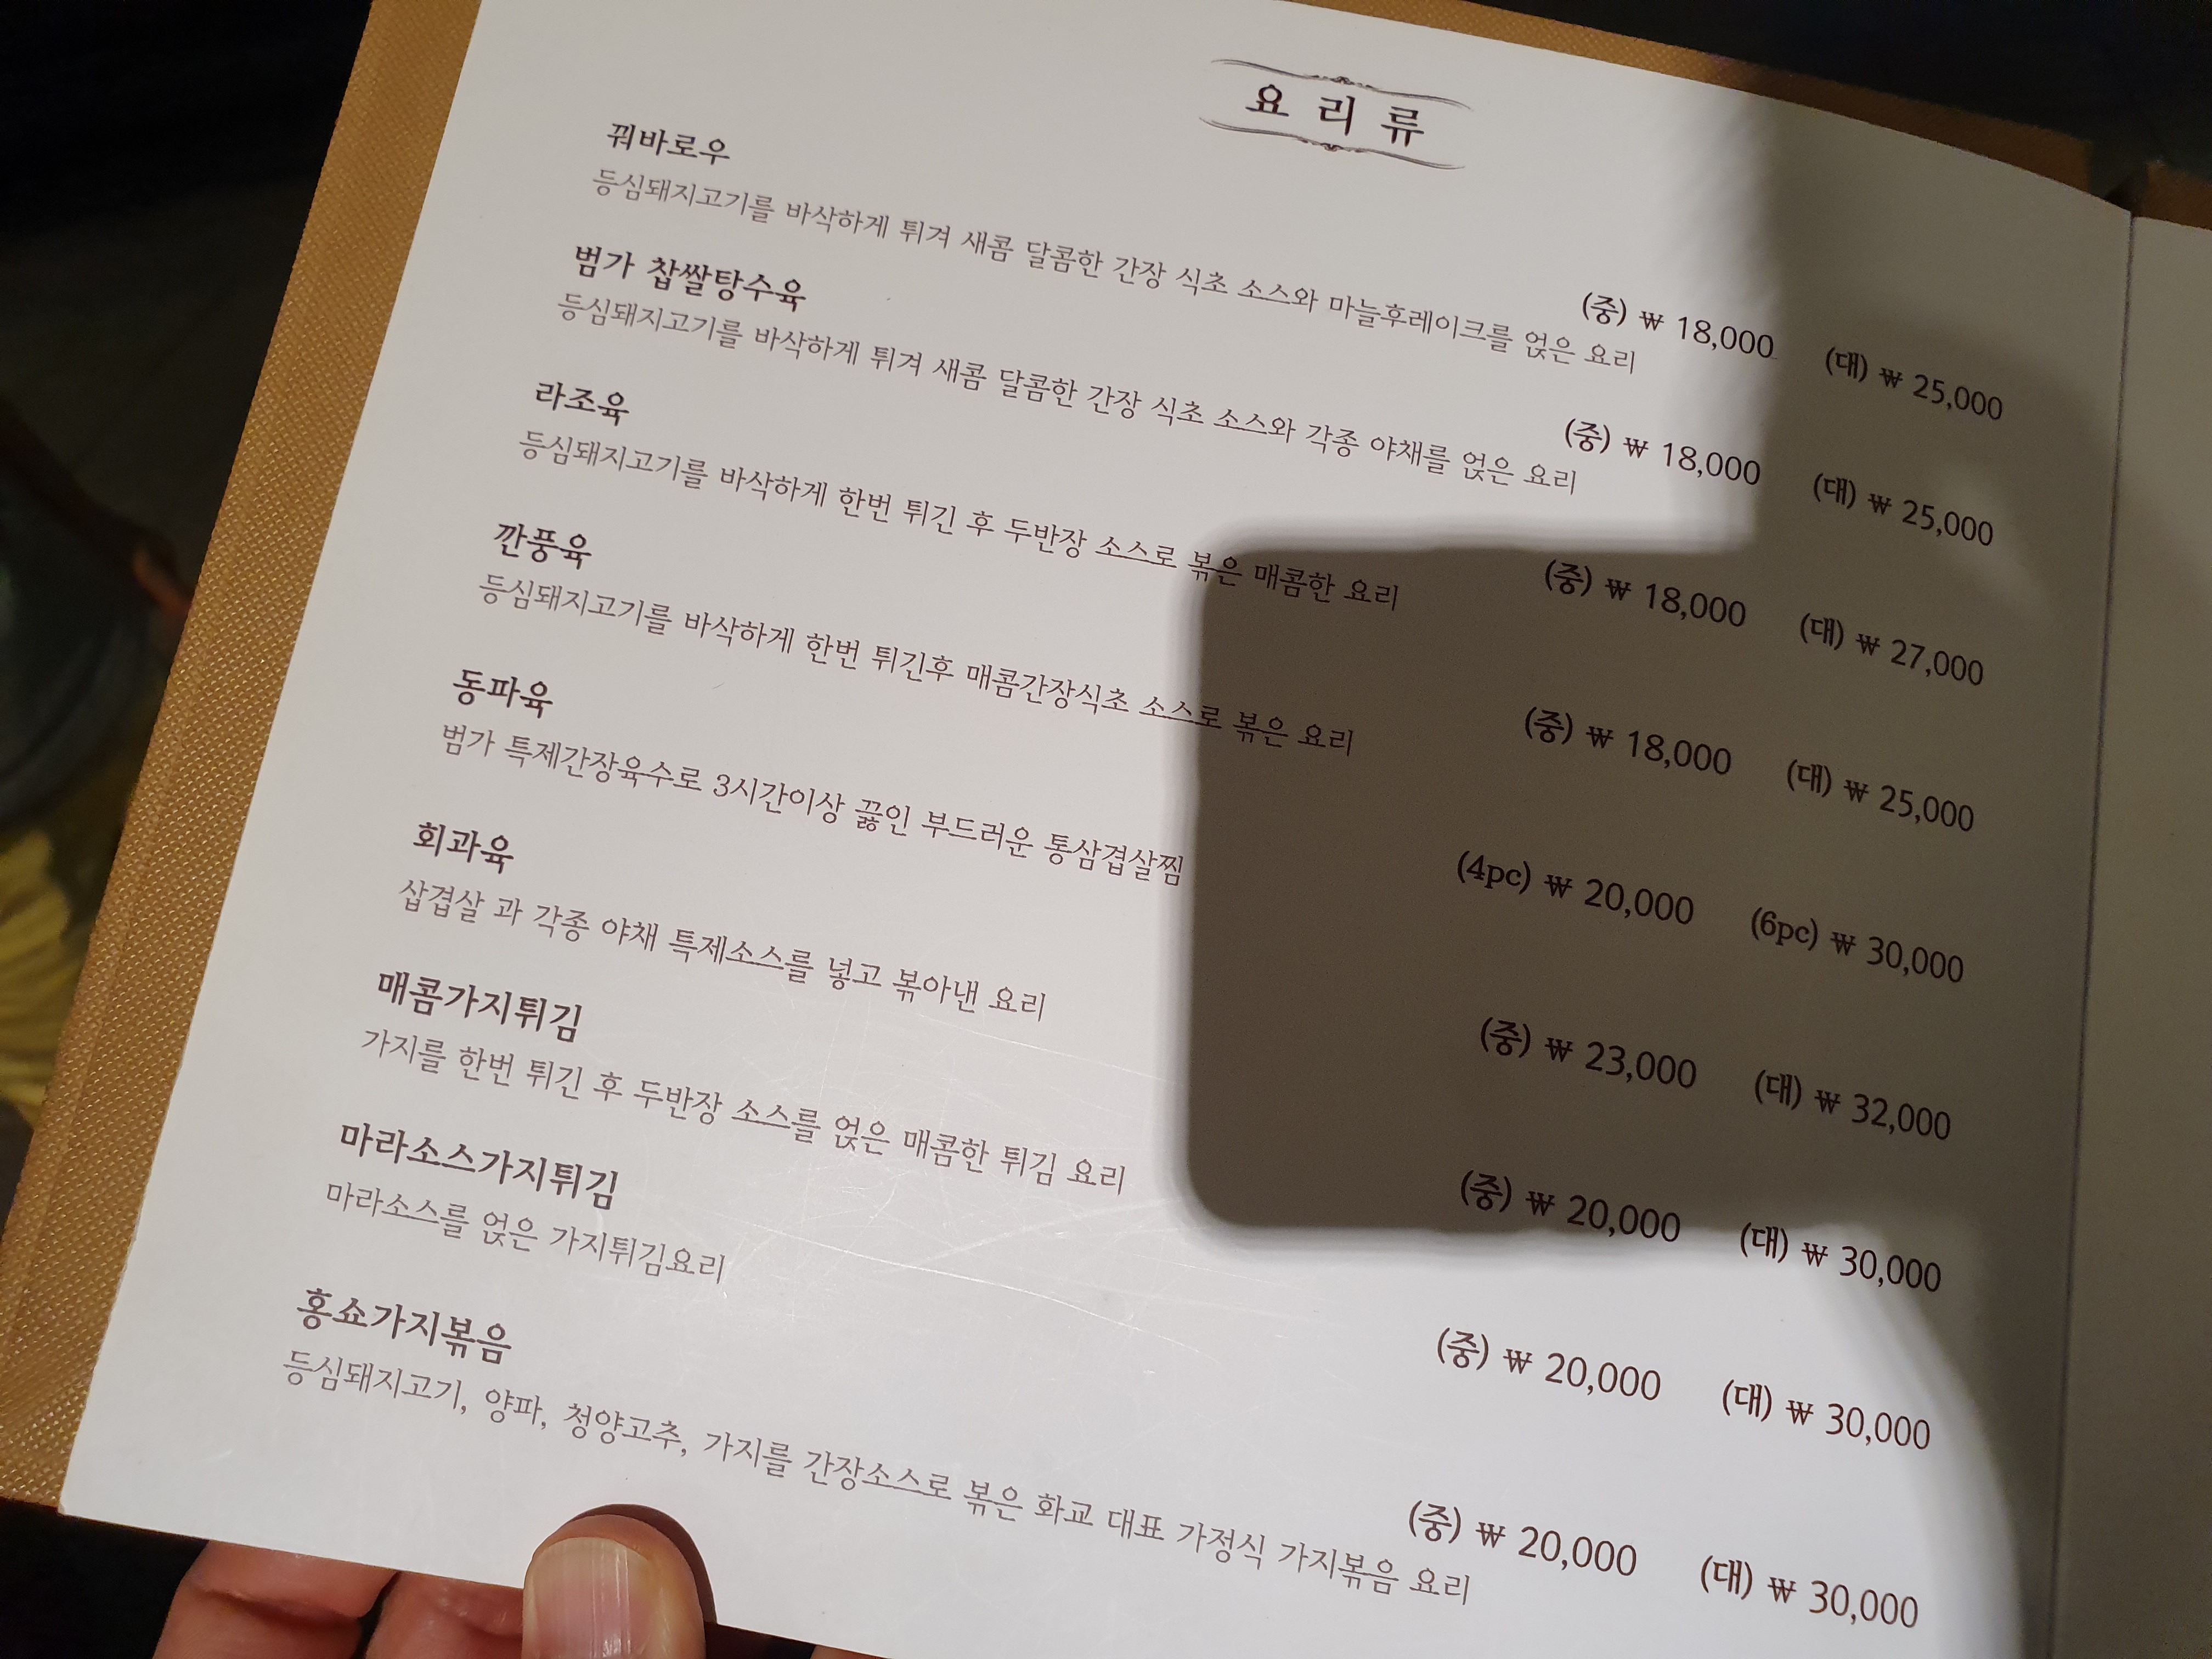 요리류
꿔바로우
(중) ₩ 18,000 (대) ₩ 25,000
등심돼지고기를 바삭하게 튀겨 새콤 달콤한 간장 식초 소스와 마늘후레이크를 얹은 요리
범가 찹쌀탕수육
(중) ₩ 18,000 (대) ₩ 25,000
등심돼지고기를 바삭하게 튀겨 새콤 달콤한 간장 식초 소스와 각종 야채를 얹은 요리
라조육
(중) ₩ 18,000 (대) ₩ 27,000
등심돼지고기를 바삭하게 한번 튀긴 후 두반장 소스로 볶은 매콤한 요리
깐풍육
(중) ₩ 18,000 (대) ₩ 25,000
등심돼지고기를 바삭하게 한번 튀긴후 매콤간장식초 소스로 볶은 요리
동파육
(4pc) ₩ 20,000 (6pc) ₩ 30,000
범가 특제간장육수로 3시간이상 끓인 부드러운 통삼겹살찜
회과육
(중) ₩ 23,000 (대) ₩ 32,000
삽겹살 과 각종 야채 특제소스를 넣고 볶아낸 요리
매콤가지튀김
(중) ₩ 20,000 (대) ₩ 30,000
가지를 한번 튀긴 후 두반장 소스를 얹은 매콤한 튀김 요리
마라소스가지튀김
(중) ₩ 20,000 (대) ₩ 30,000
마라소스를 얹은 가지튀김요리
홍쇼가지볶음
(중) ₩ 20,000 (대) ₩ 30,000
등심돼지고기, 양파, 청양고추, 가지를 간장소스로 볶은 화교 대표 가정식 가지볶음 요리